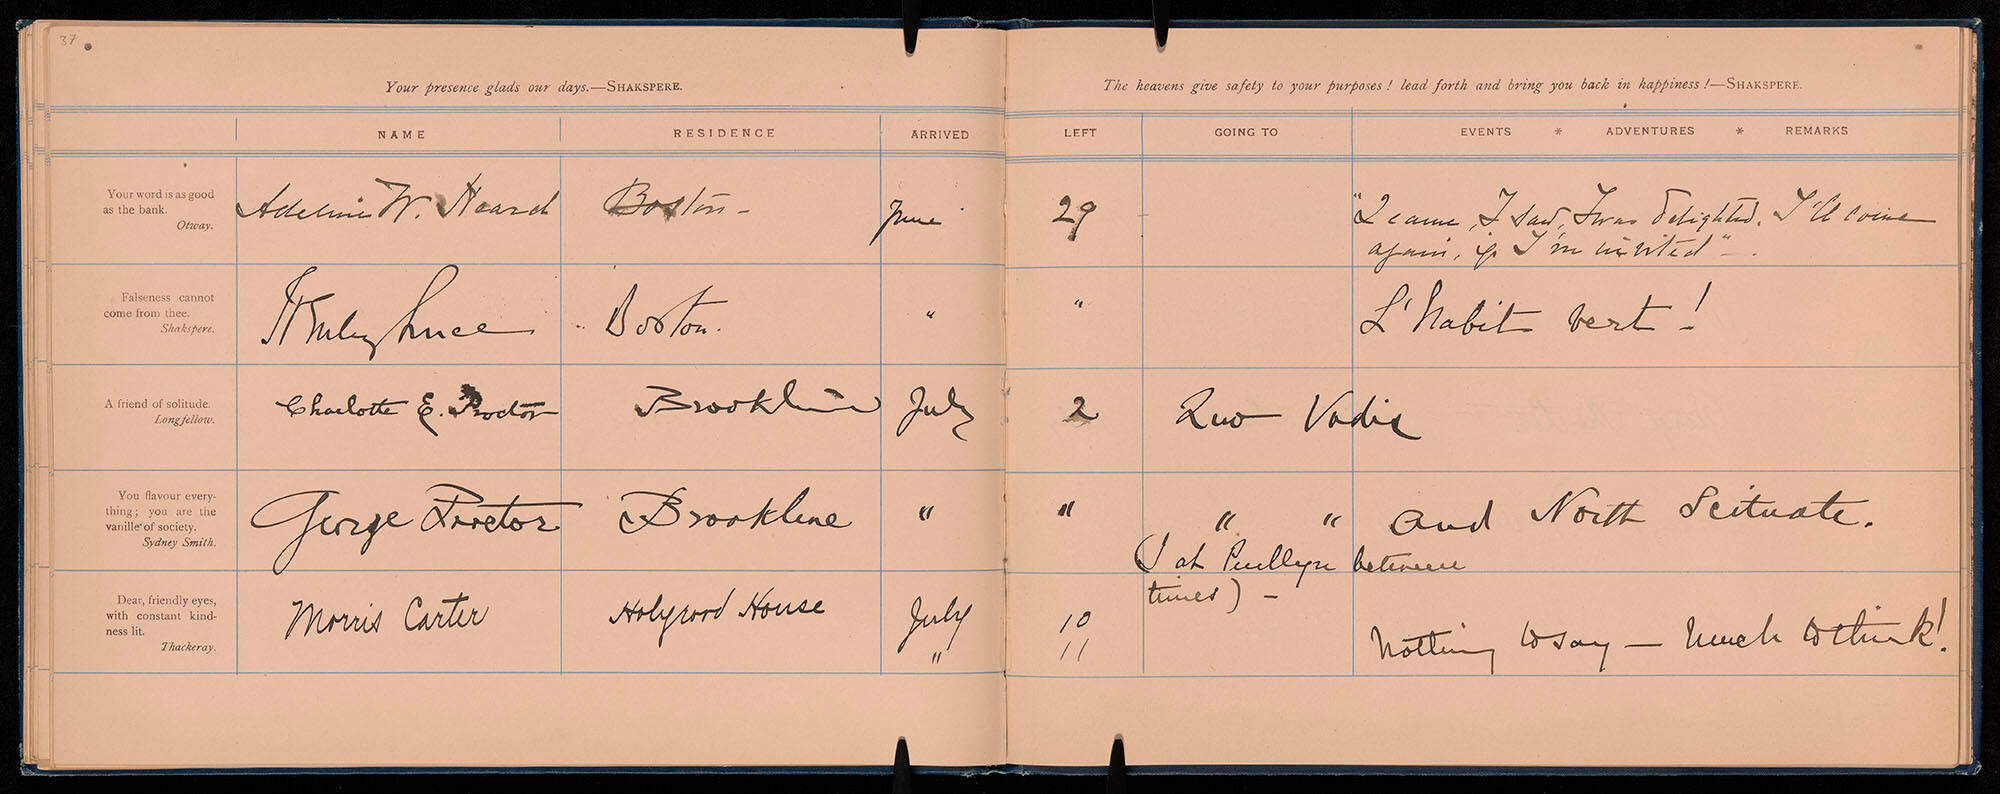 37
Your presence glads our days.—SHAKSPERE.
The heavens give safety to your purposes! lead forth and bring you back in happiness!—SHAKSPERE.
NAME RESIDENCE ARRIVED LEFT GOING TO EVENTS * ADVENTURES * REMARKS
Your word is as good
as the bank.
Otway.
Adeline W. Heard Boston - June 29 "I came, I saw, I was delighted. I'll come
again, if I'm invited" -.
Falseness cannot
come from thee.
Shakspere.
Luce Boston. " " L'Habit vert!
A friend of solitude.
Longfellow.
Charlotte E. Proctor Brookline July 2 Quo Vadis
You flavour every-
thing; you are the
vanille of society.
Sydney Smith.
George Proctor Brookline " " " " and North Scituate.
(J at between
times) -
Dear, friendly eyes,
with constant kind-
ness lit.
Thackeray.
Morris Carter Holyrood House July 10
" 11
Nothing to say - Much to think!